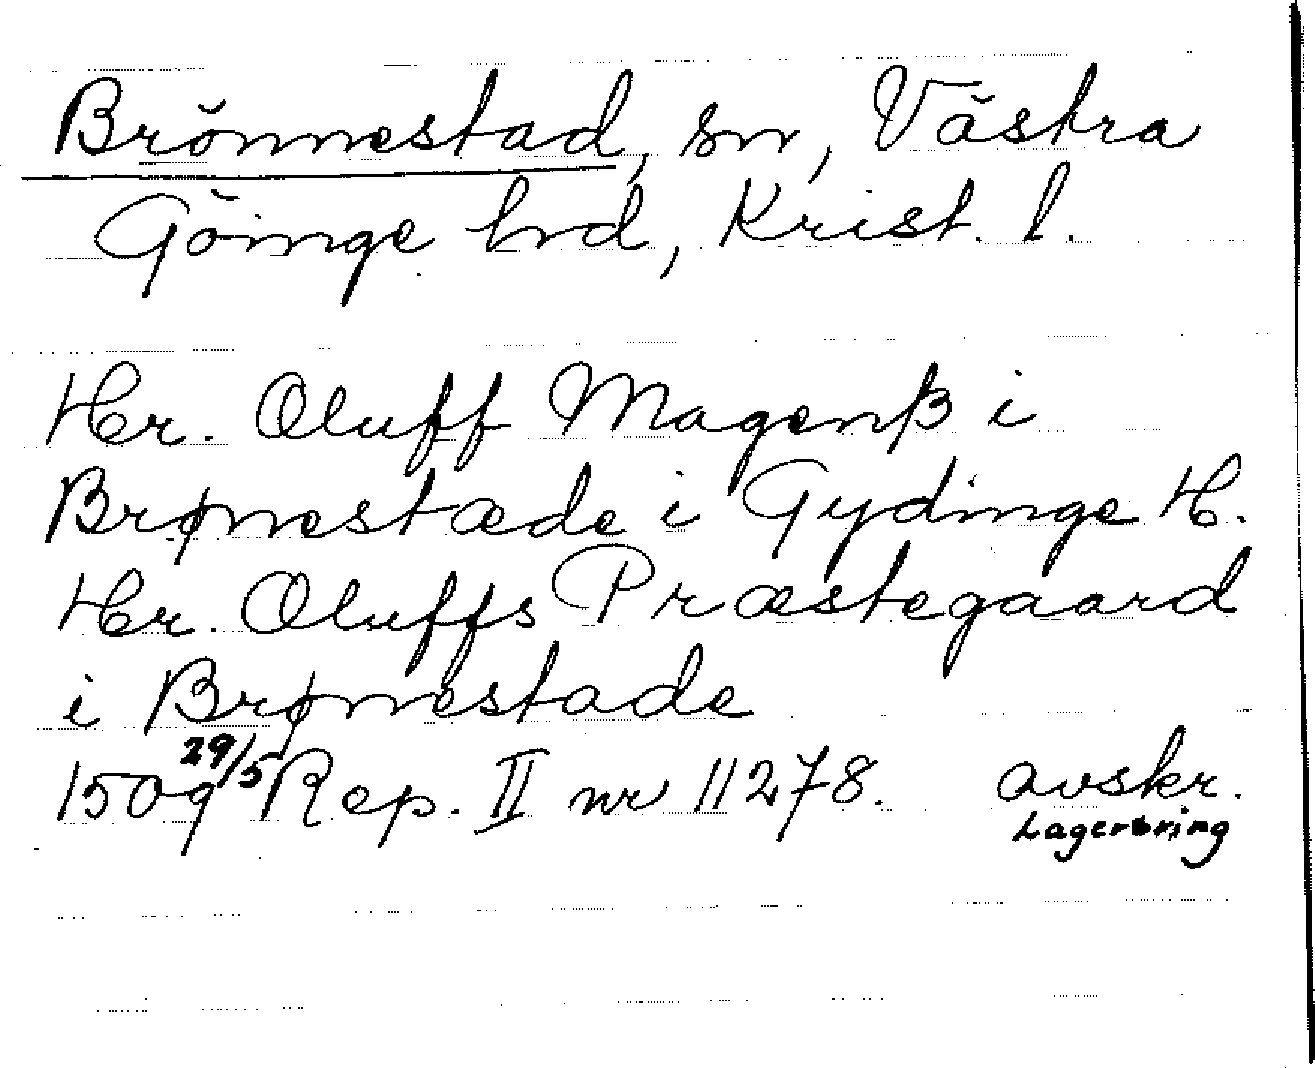 Brönnestad, sn, Västra
Göinge hrd, Krist. l.
Hr. Oluff Magenß i
Brønestæde i Gydinge H.
Hr. Oluffs Præstegaard
i Brønnestade
1509 29/5 Rep. II nr 11278. avskr.
Lagerbring